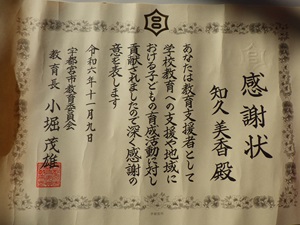 感謝状
知久 美香 殿
あなたは教育支援者として
学校教育への支援や地域に
おける子どもの育成活動に対し
貢献されましたので深く感謝の
意を表します
令和六年十一月九日
宇都宮市教育委員会
教育長 小堀 茂雄